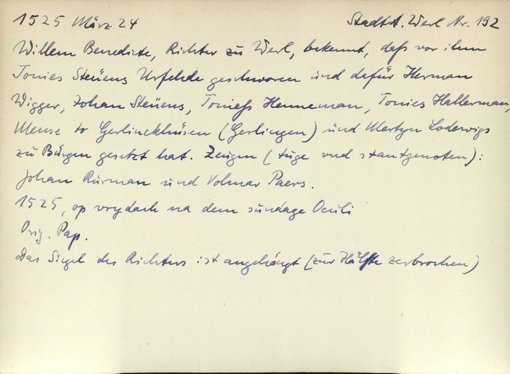 1525 März 24 Stadta. Werl Nr. 192
Willem Benedicte, Richter zu Werl, bekennt, dass vor ihm
Tonies Steuens Urfehde geschworen und dafür Herman
Wigger, Johan Steuens, Tonies Henneman, Tonies Halleman,
Mense to Gerlinckhusen (Gerlingen) und Mertyn Lodewigs
zu Bürgen gesetzt hat. Zeugen (tüge vnd stantgenoten):
Johan Rurman und Volmar Paers.
1525, op vrydach na dem sundage Oculi
Orig. Pap.
Das Siegel des Richters ist angehängt (zur Hälfte zerbrochen)